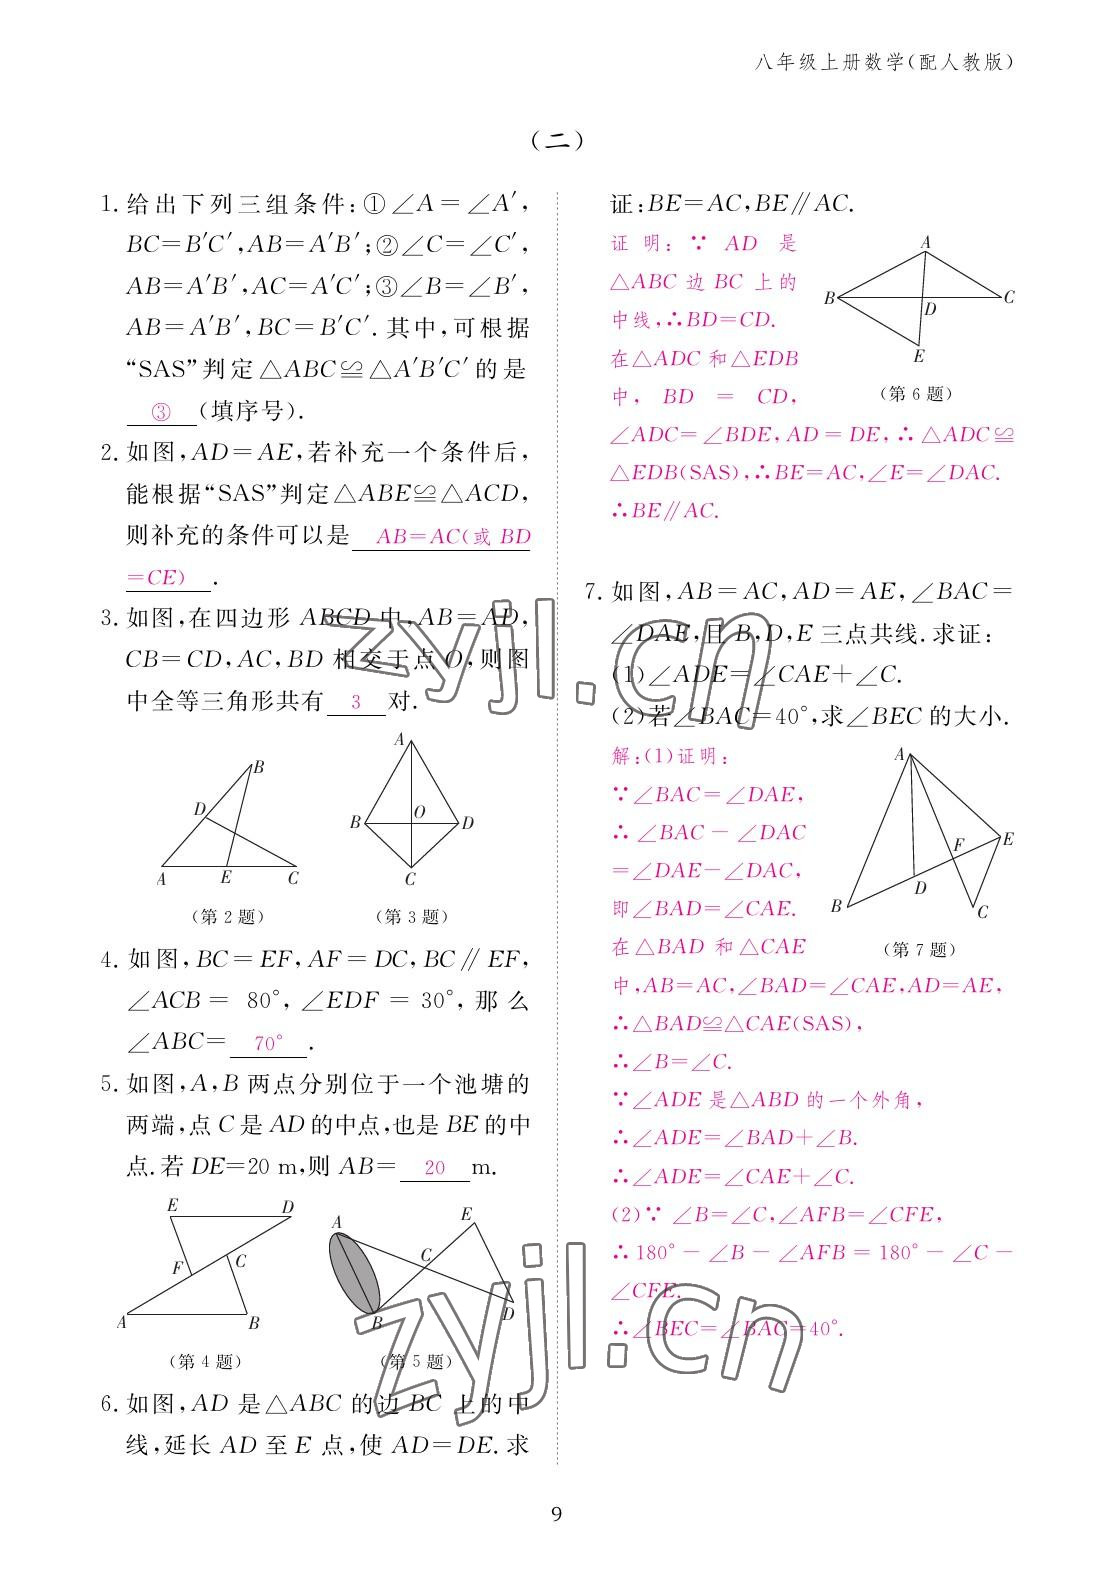 八年级上册数学(配人教版)
(二)
1. 给出下列三组条件:①∠A=∠A′,
BC=B′C′,AB=A′B′;②∠C=∠C′,
AB=A′B′,AC=A′C′;③∠B=∠B′,
AB=A′B′,BC=B′C′.其中,可根据
“SAS”判定△ABC≌△A′B′C′的是
③ (填序号).
2. 如图,AD=AE,若补充一个条件后,
能根据“SAS”判定△ABE≌△ACD,
则补充的条件可以是 AB=AC(或 BD
=CE) .
3. 如图,在四边形 ABCD 中,AB=AD,
CB=CD,AC,BD 相交于点 O,则图
中全等三角形共有 3 对.
B
D
A E C
(第 2 题)
A
B O D
C
(第 3 题)
4. 如图,BC=EF,AF=DC,BC∥EF,
∠ACB=80°,∠EDF=30°,那么
∠ABC= 70° .
5. 如图,A,B 两点分别位于一个池塘的
两端,点 C 是 AD 的中点,也是 BE 的中
点.若 DE=20 m,则 AB= 20 m.
E D
F C
A B
(第 4 题)
A E
C
B D
(第 5 题)
6. 如图,AD 是△ABC 的边 BC 上的中
线,延长 AD 至 E 点,使 AD=DE.求
证:BE=AC,BE∥AC.
证明:∵AD 是
△ABC 边 BC 上的
中线,∴BD=CD.
在△ADC 和△EDB
中,BD=CD,
∠ADC=∠BDE,AD=DE,∴△ADC≌
△EDB(SAS),∴BE=AC,∠E=∠DAC.
∴BE∥AC.
A
B D C
E
(第 6 题)
7. 如图,AB=AC,AD=AE,∠BAC=
∠DAE,且 B,D,E 三点共线.求证:
(1)∠ADE=∠CAE+∠C.
(2)若∠BAC=40°,求∠BEC 的大小.
解:(1)证明:
∵∠BAC=∠DAE,
∴∠BAC-∠DAC
=∠DAE-∠DAC,
即∠BAD=∠CAE.
在△BAD 和△CAE
中,AB=AC,∠BAD=∠CAE,AD=AE,
∴△BAD≌△CAE(SAS),
∴∠B=∠C.
∵∠ADE 是△ABD 的一个外角,
∴∠ADE=∠BAD+∠B.
∴∠ADE=∠CAE+∠C.
(2)∵∠B=∠C,∠AFB=∠CFE,
∴180°-∠B-∠AFB=180°-∠C-
∠CFE.
∴∠BEC=∠BAC=40°.
A
F E
D
B C
(第 7 题)
zyjl.cn
zyjl.cn
9